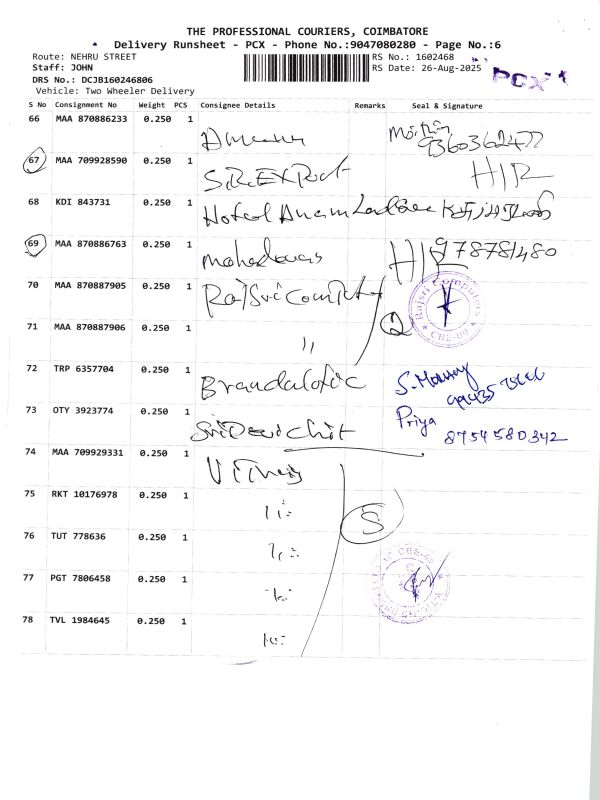 THE PROFESSIONAL COURIERS, COIMBATORE
Delivery Runsheet - PCX - Phone No.:9047080280 - Page No.:6
Route: NEHRU STREET
RS No.: 1602468
Staff: JOHN
RS Date: 26-Aug-2025
PCX
DRS No.: DCJB160246806
Vehicle: Two Wheeler Delivery
S No Consignment No Weight PCS Consignee Details Remarks Seal & Signature
66 MAA 870886233 0.250 1
9360362477
67 MAA 709928590 0.250 1 S.R.EXPort
68 KDI 843731 0.250 1 Hotel
69 MAA 870886763 0.250 1 Mahadevas 978781480
70 MAA 870887905 0.250 1 RajSri Computer
Rajsri Computers
CBE-09
71 MAA 870887906 0.250 1 11 2
72 TRP 6357704 0.250 1
73 OTY 3923774 0.250 1 Sri Devi Chit Priya
8754580342
74 MAA 709929331 0.250 1
75 RKT 10176978 0.250 1 5
76 TUT 778636 0.250 1
77 PGT 7806458 0.250 1
78 TVL 1984645 0.250 1